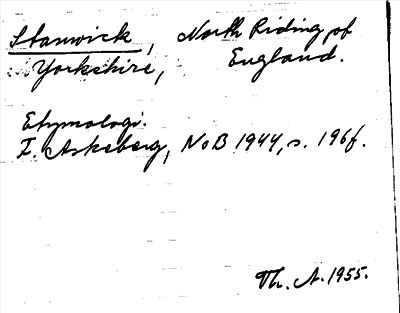 Stanwick, North Riding of
Yorkshire, England.
Etymologi.
F. Askeberg, NoB 1944, s. 196f.
Th. A. 1955.